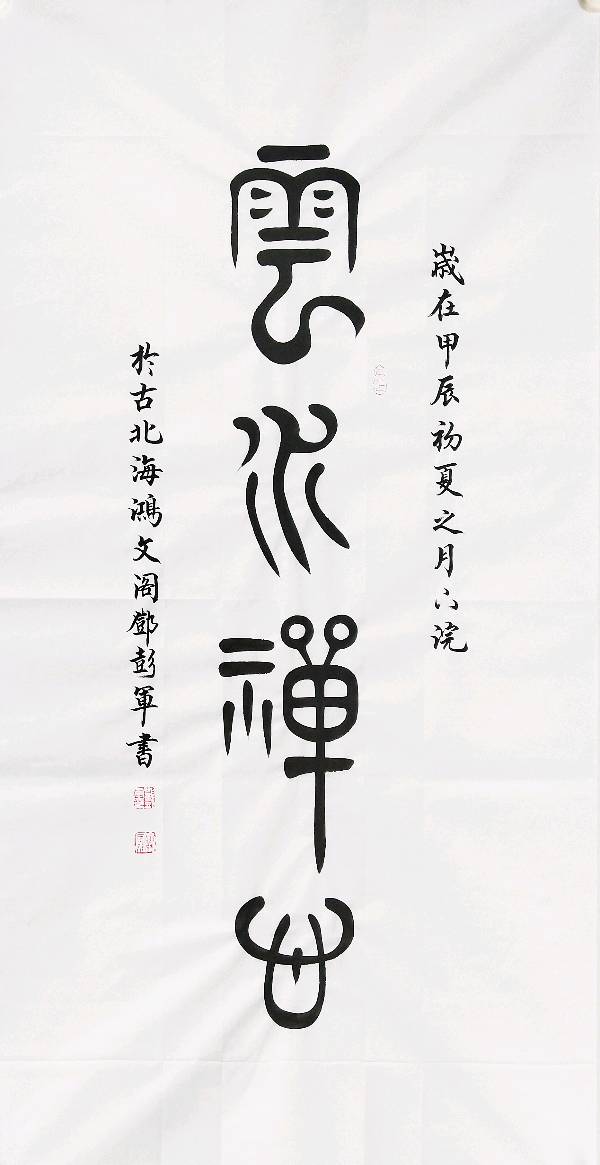 歲在甲辰初夏之月下浣
雲水禪心
於古北海鴻文阁鄧彭軍书